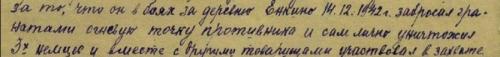 за то, что он в боях за деревню Енкино 14.12.1942 г. забросал гра-
натами огневую точку противника и сам лично уничтожил
3х немцев и вместе с другими товарищами участвовал в захвате